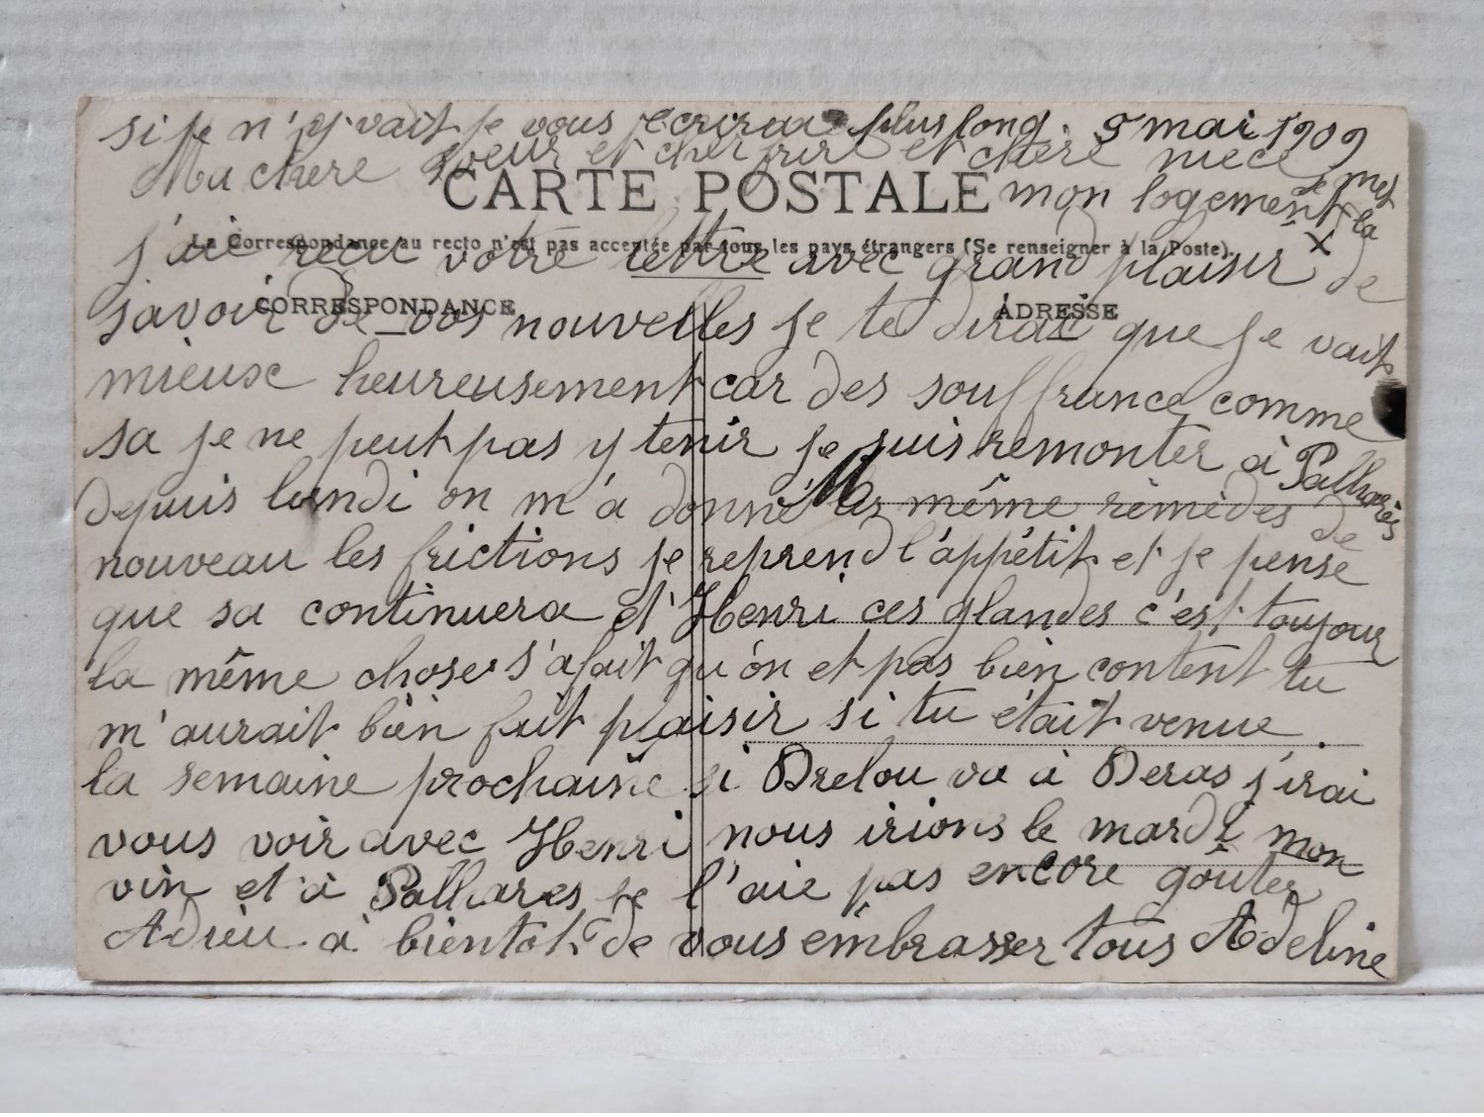 si je n'y vait je vous écrirai plus long. 5 mai 1909
Ma chere Soeur et cher frere et chère niece
CARTE POSTALE
mon logement je met la X
La Correspondance au recto n'est pas acceptée par tous les pays étrangers (Se renseigner à la Poste).
j'aie recu votre lettre avec grand plaisir de
CORRESPONDANCE
ADRESSE
savoir de vos nouvelles je te dirai que je vait
mieuse heureusement car des souffrance comme
sa je ne peut pas y tenir je suis remonter à Palharès
depuis lundi on m'a donné les même rèmèdes de
nouveau les frictions je reprend l'appétit et je pense
que sa continuera et Henri ces glandes c'est toujour
la même chose s'a fait qu'on et pas bien content tu
m'aurait bien fait plaisir si tu était venue.
la semaine prochaine si Drelou va à Deras j'irai
vous voir avec Henri nous irions le mardi mon
vin et à Palhares je l'aie pas encore goûter
Adieu à bientot de vous embrasser tous Adeline